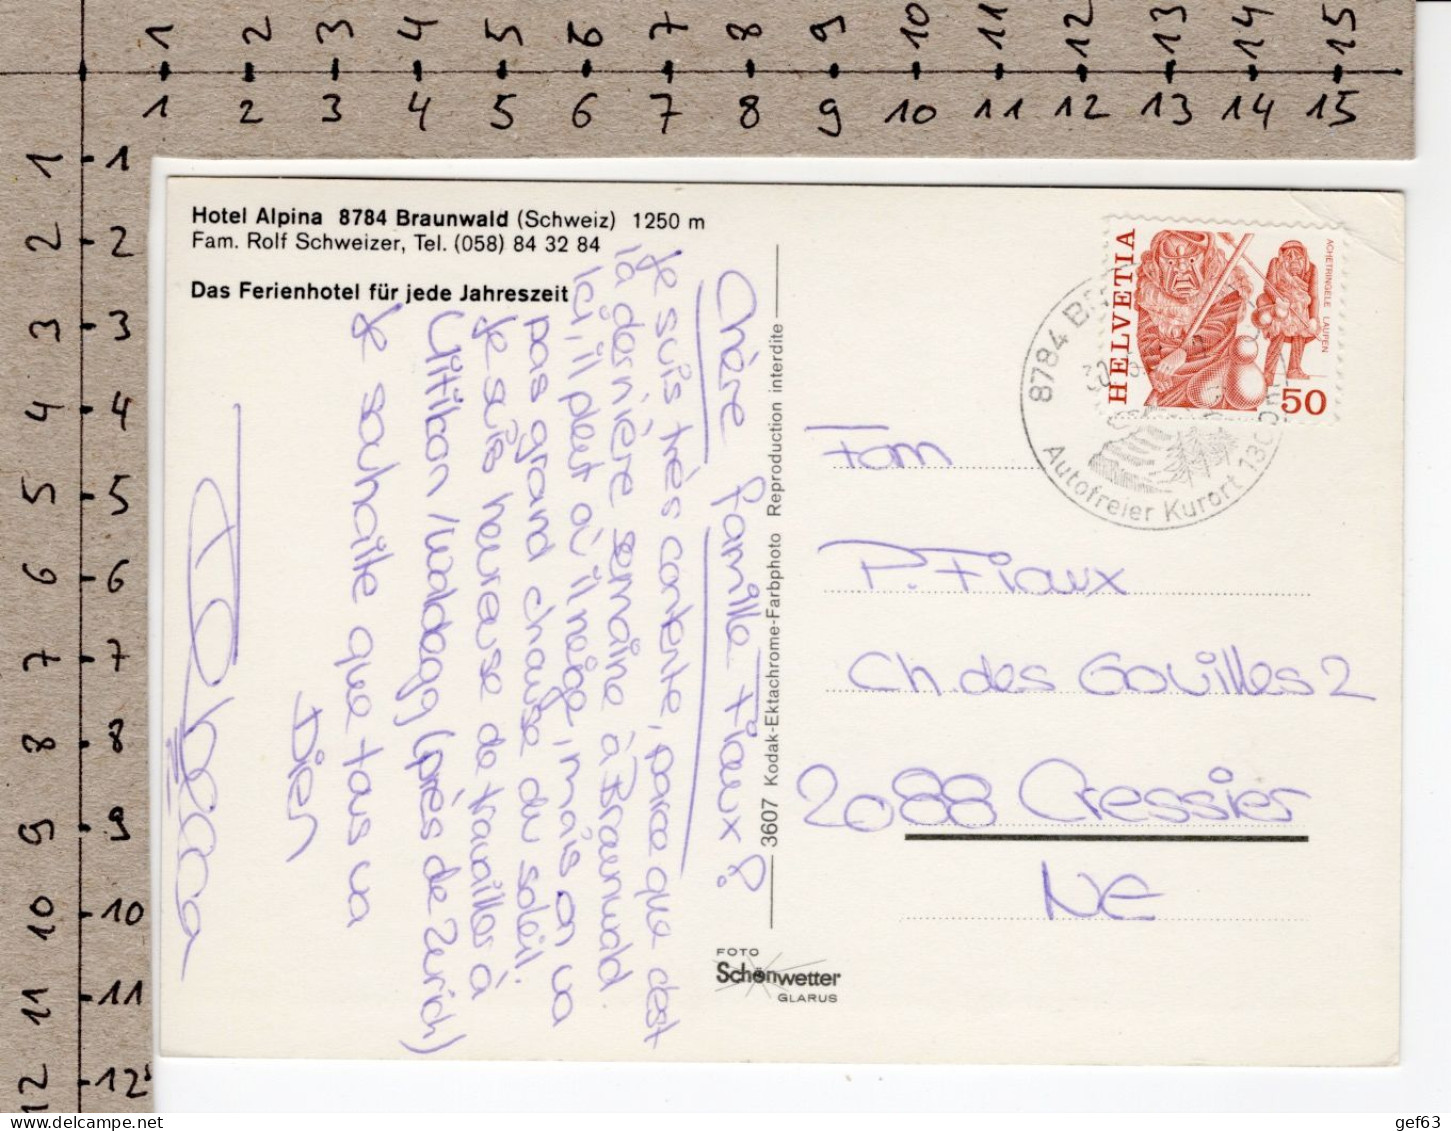 1 2 3 4 5 6 7 8 9 10 11 12 13 14 15
1 2 3 4 5 6 7 8 9 10 11 12 13 14 15
1 2 3 4 5 6 7 8 9 10 11 12
1 2 3 4 5 6 7 8 9 10 11 12
Hotel Alpina 8784 Braunwald (Schweiz) 1250 m
Fam. Rolf Schweizer, Tel. (058) 84 32 84
Das Ferienhotel für jede Jahreszeit
Chère famille Fiaux!
Je suis très contente, parce que c'est
la dernière semaine à Braunwald.
Ici, il pleut où il neige, mais on va
pas grand chause du soleil.
Je suis heureuse de travailler à
Uitikon/Waldegg (près de Zürich)
Je souhaite que tous va
bien
3607 Kodak-Ektachrome-Farbphoto Reproduction interdite
FOTO
Schönwetter
GLARUS
HELVETIA
ACHETRINGELE LAUFEN
50
8784
Autofreier Kurort
Fam
P. Fiaux
Ch. des Gouilles 2
2088 Cressier
NE
gef63